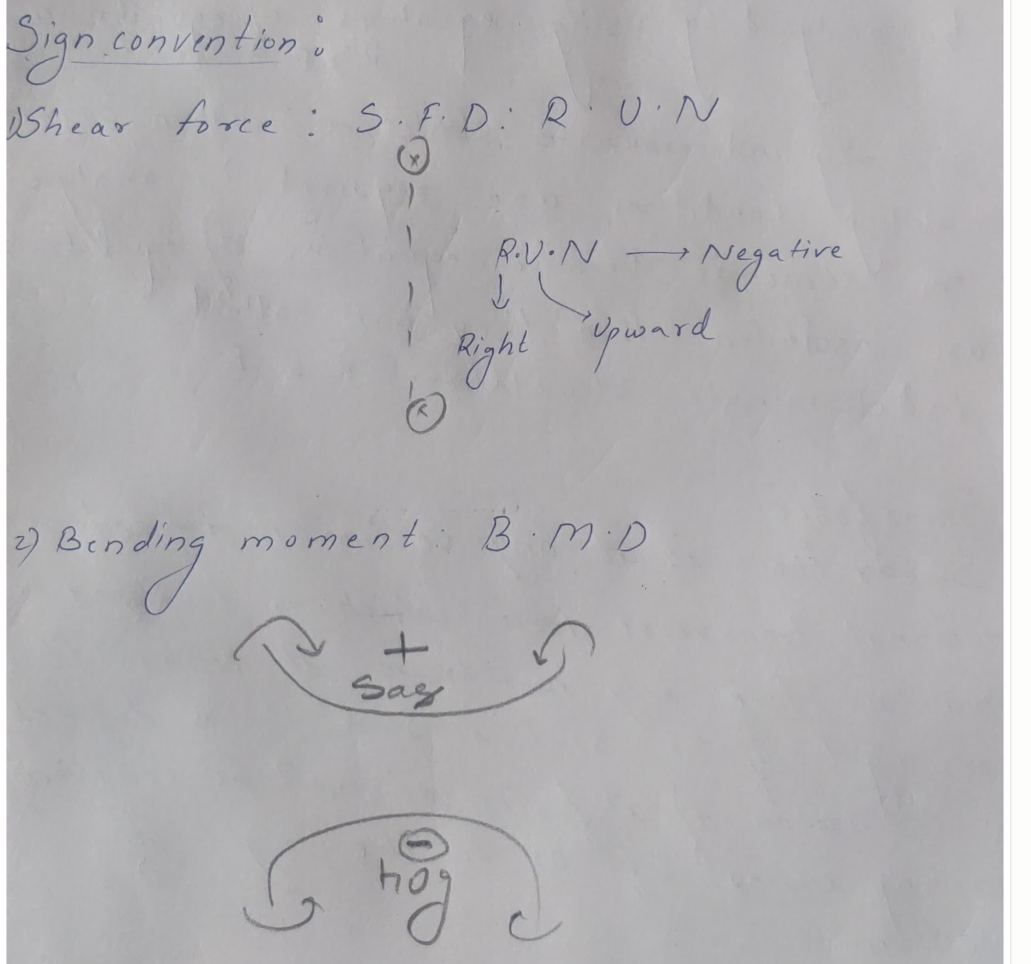 Sign convention:
1) Shear force : S.F.D: R.U.N
x
R.U.N → Negative
Right Upward
x
2) Bending moment: B.M.D
+
Sag
-
hog